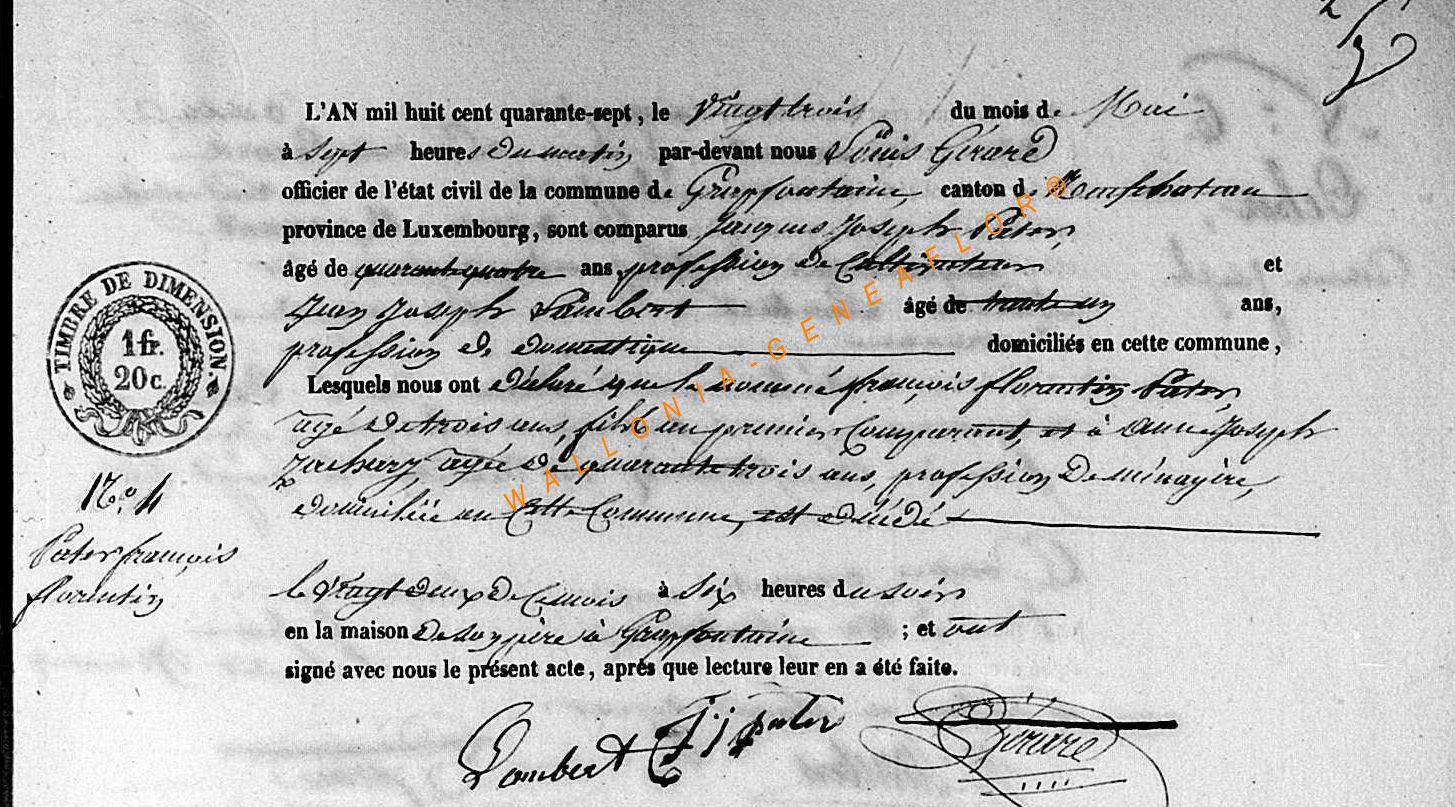 L'AN mil huit cent quarante-sept, le vingt trois du mois de Mai
à sept heures du matin par-devant nous Louis Gérard
officier de l'état civil de la commune de Grapfontaine, canton de Neufchateau
province de Luxembourg, sont comparus Jacques Joseph Pater,
âgé de quarante quatre ans, profession de Cultivateur et
Jean Joseph Lambert âgé de trente un ans,
profession de domestique domiciliés en cette commune,
Lesquels nous ont déclaré que le nommé françois florentin Pater,
agé de trois ans, fils du premier Comparant, et à anne Joseph
Zachary, agée de quarante trois ans, profession de ménagère,
domiciliée en Cette Commune, est décédé
le vingt deux de Ce mois à six heures du soir
en la maison de son père à Grapfontaine ; et ont
signé avec nous le présent acte, après que lecture leur en a été faite.
Lambert J j pater Gérard
TIMBRE DE DIMENSION.
1 fr.
20 c.
N° 4
Pater françois
florentin
WALLONIA-GENEAFLOR®